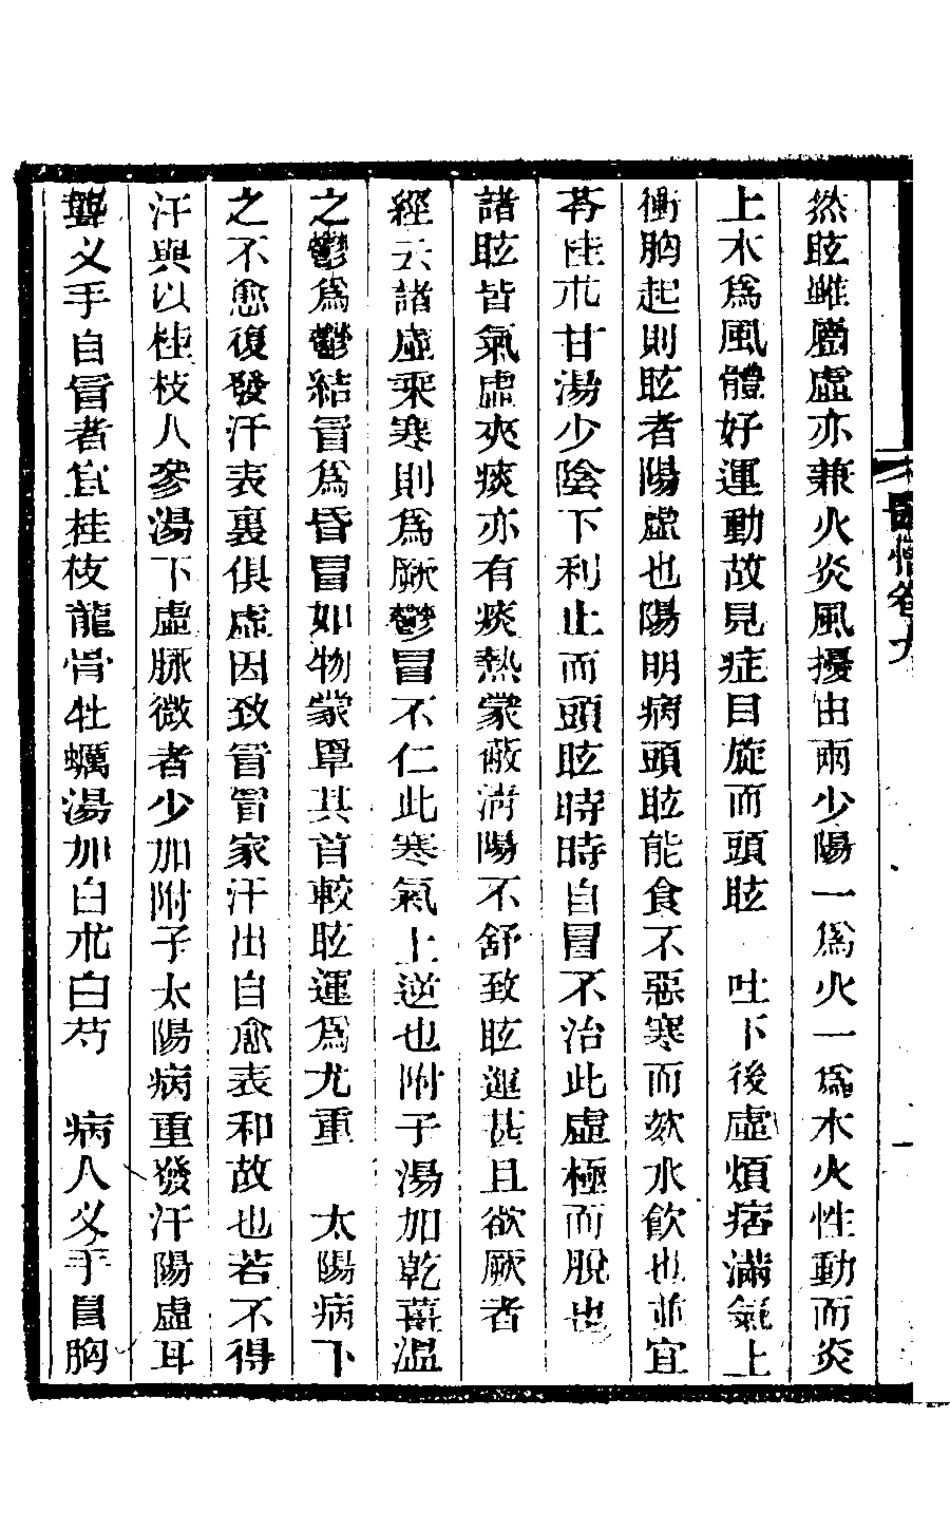 然眩雖屬虛亦兼火炎風擾由兩少陽一為火一為木火性動而炎
上木為風體好運動故見症目旋而頭眩　吐下後虛煩痞滿氣上
衝胸起則眩者陽虛也陽明病頭眩能食不惡寒而欬水飲也並宜
苓桂朮甘湯少陰下利止而頭眩時時自冒不治此虛極而脫也
諸眩皆氣虛夾痰亦有痰熱蒙蔽清陽不舒致眩運甚且欲厥者
經云諸虛乘寒則為厥鬱冒不仁此寒氣上逆也附子湯加乾薑溫
之鬱為鬱結冒為昏冒如物蒙罩其首較眩運為尤重　太陽病下
之不愈復發汗表裏俱虛因致冒冒家汗出自愈表和故也若不得
汗與以桂枝人參湯下虛脈微者少加附子太陽病重發汗陽虛耳
聾义手自冒者宜桂枝龍骨牡蠣湯加白朮白芍　病人义手冒胸
卷六
一